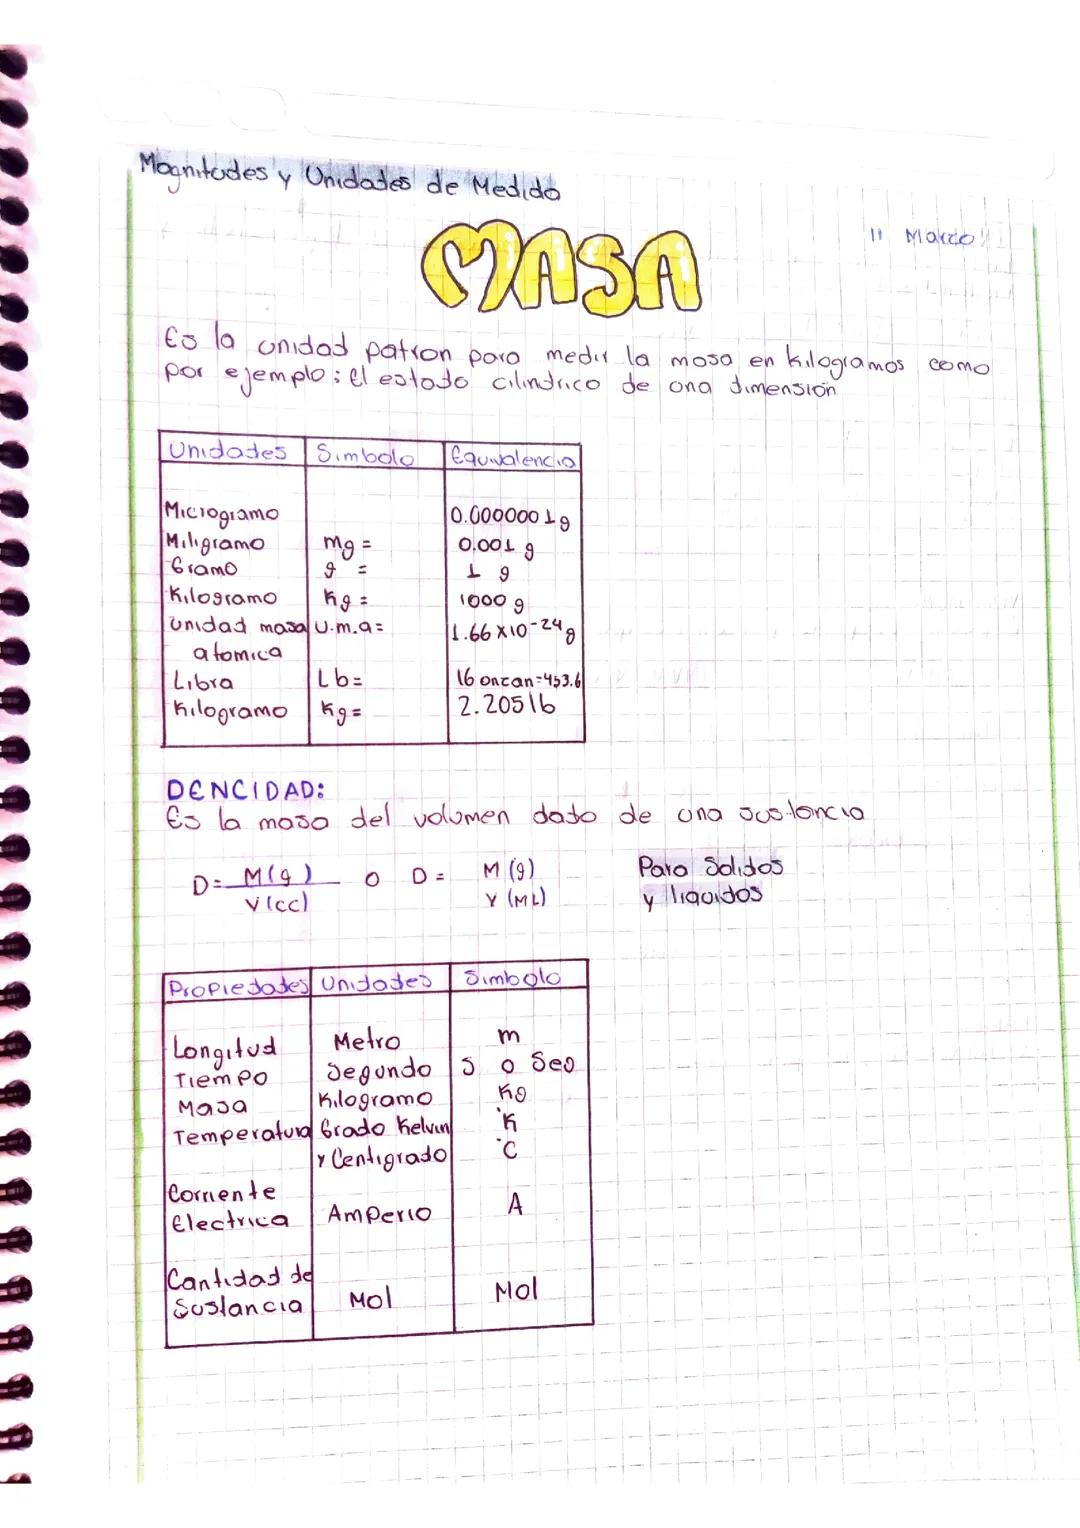 Magnitudes y Unidades de Medida
MASA
11 Marzo
Es la unidad patron para medir la masa en Kilogramos como
por ejemplo; El estado cilindrico de una dimensión
Unidades Simbolo Equivalencia
Microgramo 0.0000001 g
Miligramo mg = 0.001 g
Gramo g = 1 g
Kilogramo Kg = 1000 g
Unidad masa U.m.a = 1.66 x10-24 g
atomica
Libra Lb = 16 onzan=453.6
Kilogramo Kg = 2.205 lb
DENCIDAD:
Es la masa del volumen dado de una sustancia
D = M(g) o D = M (g) Para Solidos
V(cc) V (ML) y liquidos
Propiedades Unidades Simbolo
Longitud Metro m
Tiempo Segundo S o Seg
Masa Kilogramo Kg
Temperatura Grado Kelvin °K
y Centigrado °C
Corriente
Electrica Amperio A
Cantidad de
Sustancia Mol Mol